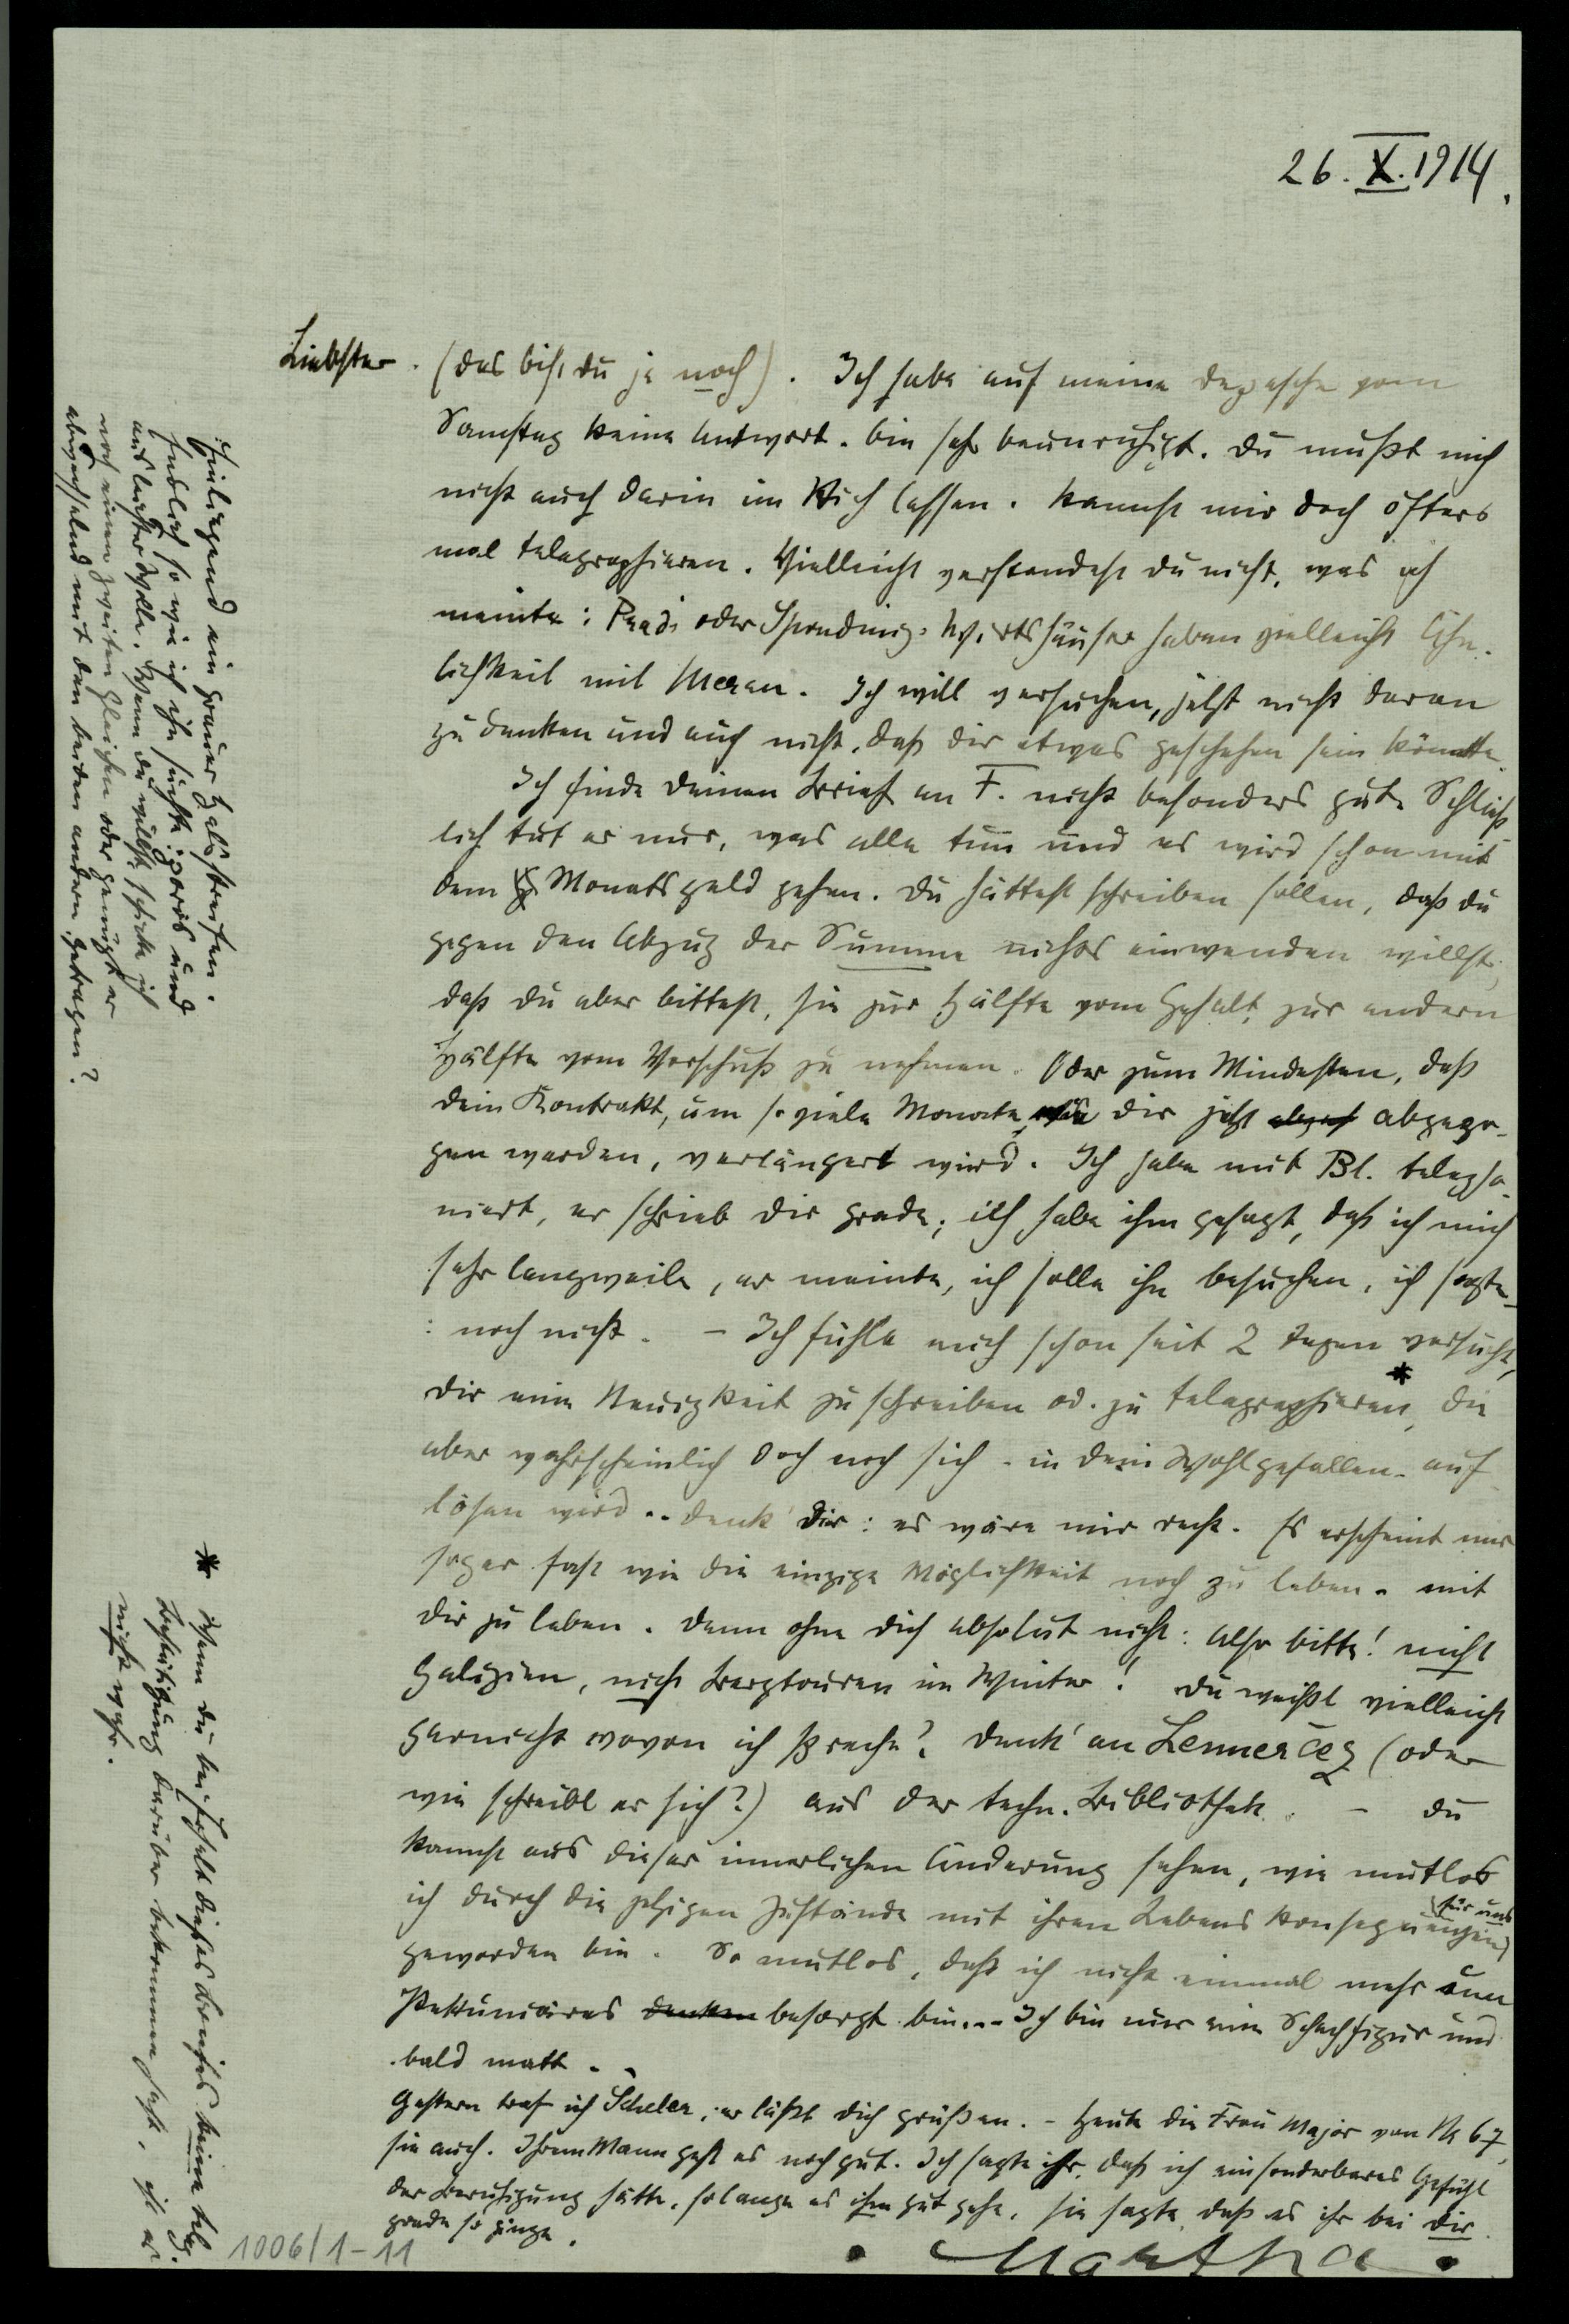 26. X. 1914.
Liebster. (das bist du ja noch). Ich habe auf meine Depesche vom
Samstag keine Antwort. Bin sehr beunruhigt. Du mußt mich
nicht auch darin im Stich lassen. Kannst mir doch öfters
mal telegraphieren. Vielleicht verstandest du nicht, was ich
meinte: Prad oder Spondinig. Wirtshäuser haben vielleicht Ähn-
lichkeit mit Meran. Ich will versuchen, jetzt nicht daran
zu denken und auch nicht, daß dir etwas geschehen sein könnte.
Ich finde deinen Brief an F. nicht besonders gut. Schließ
lich tut er nur, was alle tun und es wird schon mit
dem Monatsgeld gehen. Du hättest schreiben sollen, daß du
gegen den Abzug der Summe nichts einwenden willst,
daß du aber bittest, sie zur Hälfte vom Gehalt, zur andern
Hälfte vom Vorschuß zu nehmen. Oder zum Mindesten, daß
dein Kontrakt, um so viele Monate, wie dir jetzt abgezo-
gen werden, verlängert wird. Ich habe mit Bl. telepho-
niert, er schrieb dir grade; ich habe ihm gesagt, daß ich mich
sehr langweile, er meinte, ich solle ihn besuchen, ich sagte
: noch nicht. – Ich fühle mich schon seit 2 Tagen versucht,
dir eine Neuigkeit zu schreiben od. zu telegraphieren*, die
aber wahrscheinlich doch noch sich – in dein Wohlgefallen – auf
lösen wird.. Denk' dir: es wäre mir recht. Es erscheint mir
sogar fast wie die einzige Möglichkeit noch zu leben – mit
dir zu leben. Denn ohne dich absolut nicht: Also bitte! nicht
Galizien, nicht Bergtouren im Winter! Du weißt vielleicht
garnicht wovon ich spreche? Denk' an Lennerčez (oder
wie schreibt er sich?) aus der techn. Bibliothek. – Du
kannst aus dieser innerlichen Änderung sehen, wie mutlos
ich durch die jetzigen Zustände mit ihren Lebenskonsequenzen (für uns)
geworden bin. So mutlos, daß ich nicht einmal mehr um
Pekuniäres denken besorgt bin... Ich bin nur eine Schachfigur und
bald matt..
Gestern traf ich Scheler, er läßt dich grüßen. – Heute die Frau Major von N 67,
sie auch. Ihrem Mann geht es noch gut. Ich sagte ihr, daß ich ein sonderbares Gefühl
der Beruhigung hätte, solange es ihm gut gehe, sie sagte, daß es ihr bei dir
grade so ginge.
. Martha .
Einliegend ein grauer Halsstreifen.
Endlich so wie ich ihn suchte: und
aus bester Wolle. Wenn du willst, schicke ich
noch einen zweiten gleichen oder genügt er
abwechselnd mit den beiden andern getragen?
* Wenn du bei Erhalt dieses Briefes keine telegr.
Bestätigung darüber bekommen hast, ist es
nicht wahr.
1006/1-11